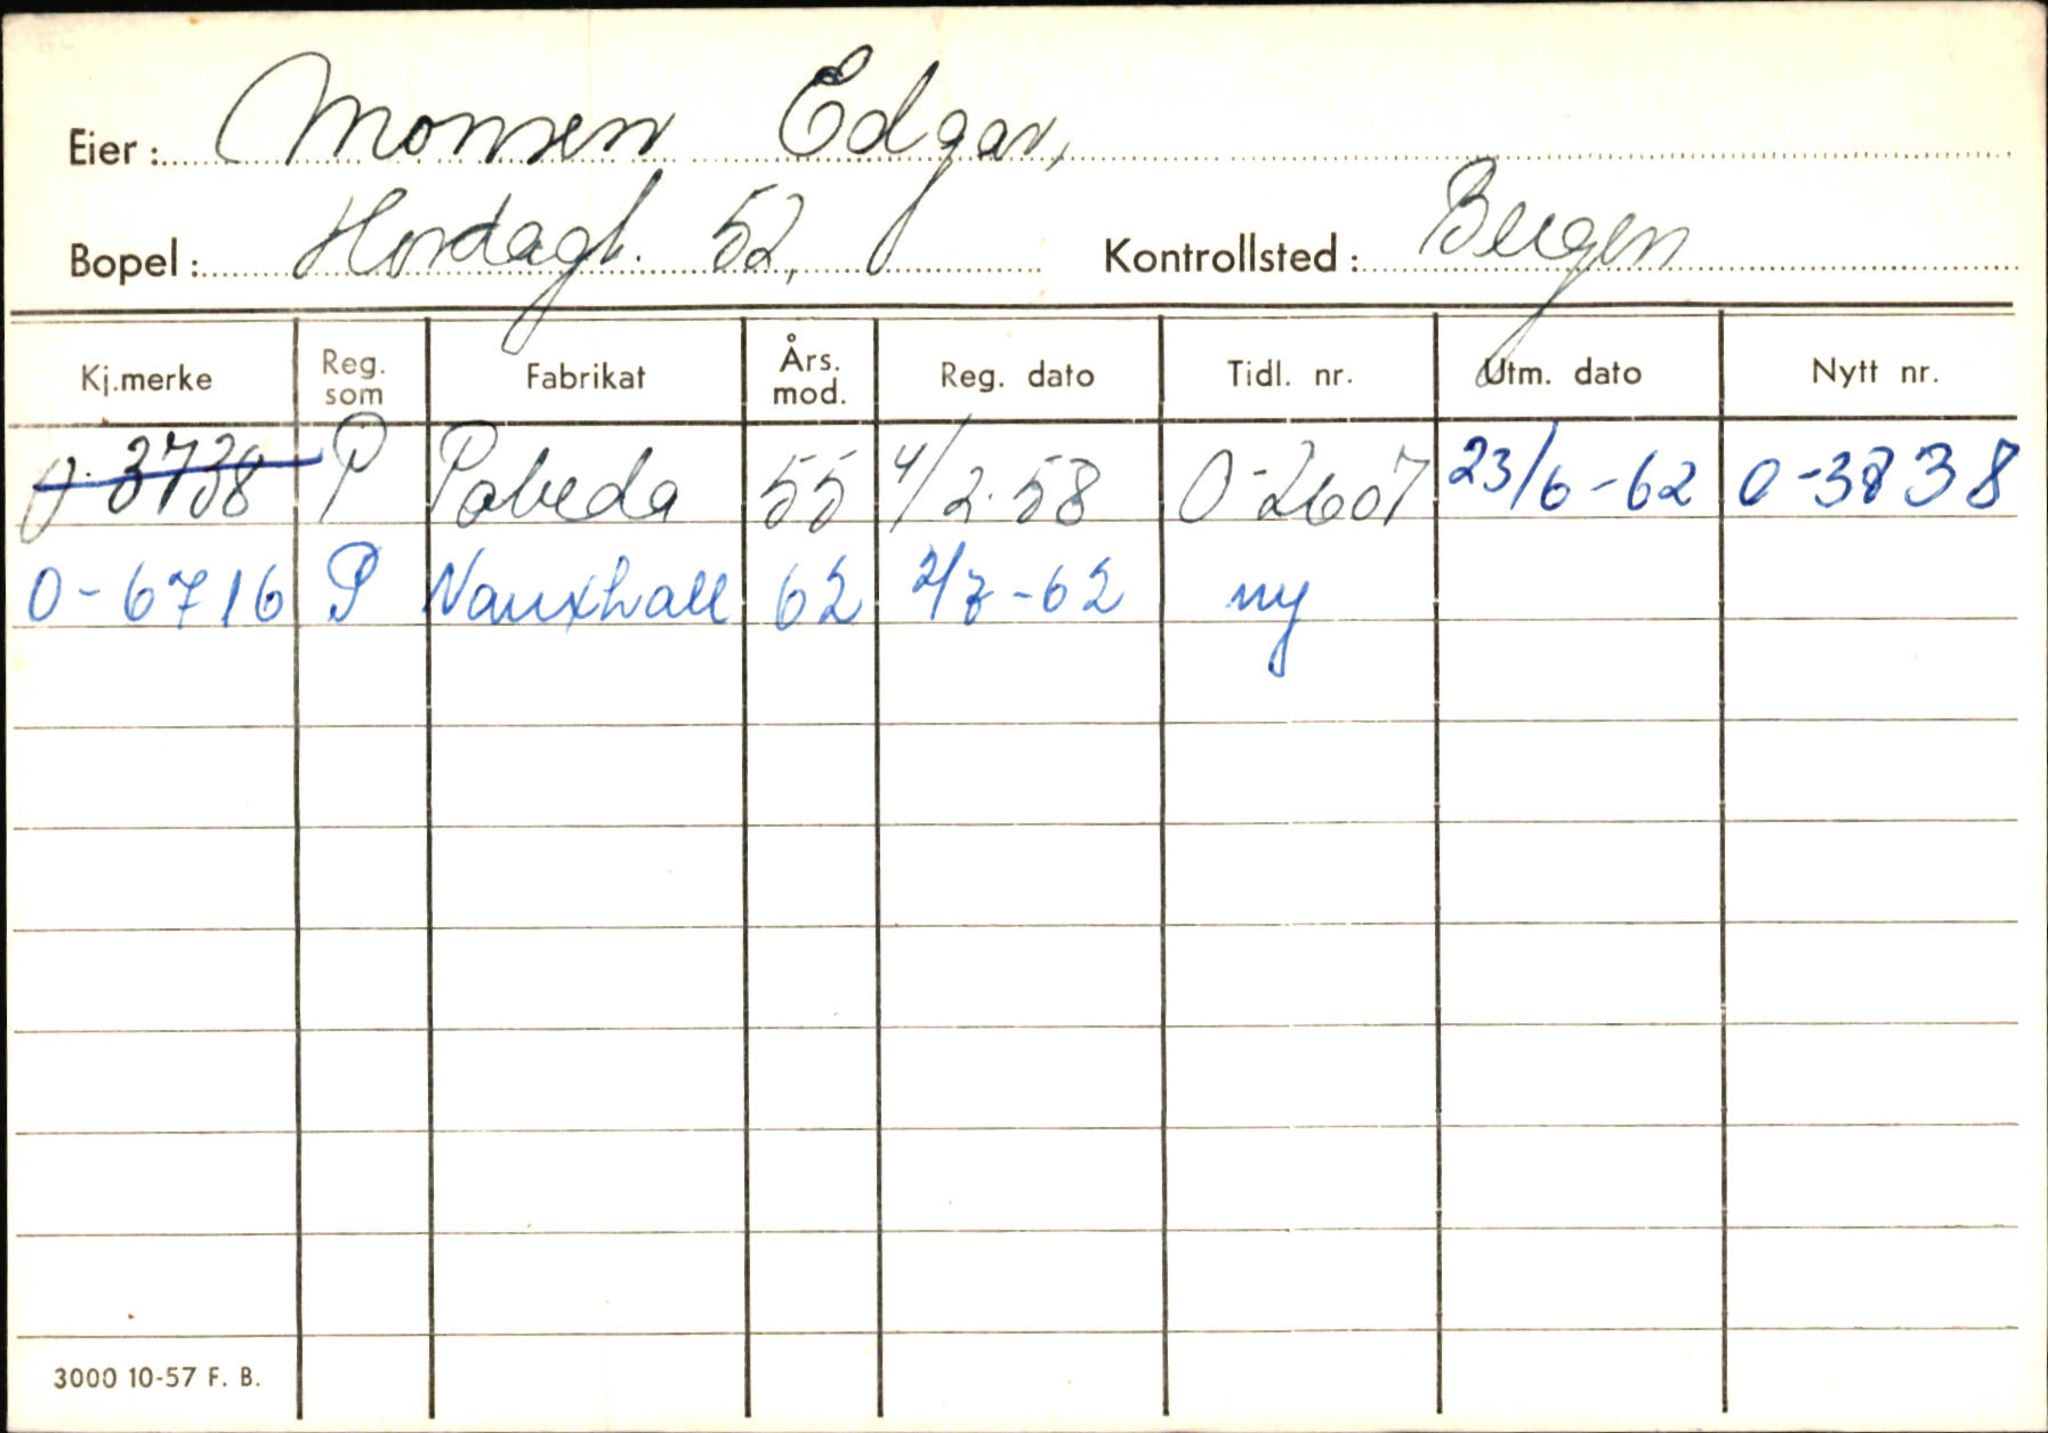 Eier: Monsen Edgar,
Bopel: Hordagt. 52, Kontrollsted: Bergen
Kj.merke Reg. som Fabrikat Års. mod. Reg. dato Tidl. nr. Utm. dato Nytt nr.
O-3738 P Pobeda 55 4/2-58 O-2607 23/6-62 O-3838
O-6716 P Vauxhall 62 2/7-62 ny
3000 10-57 F. B.